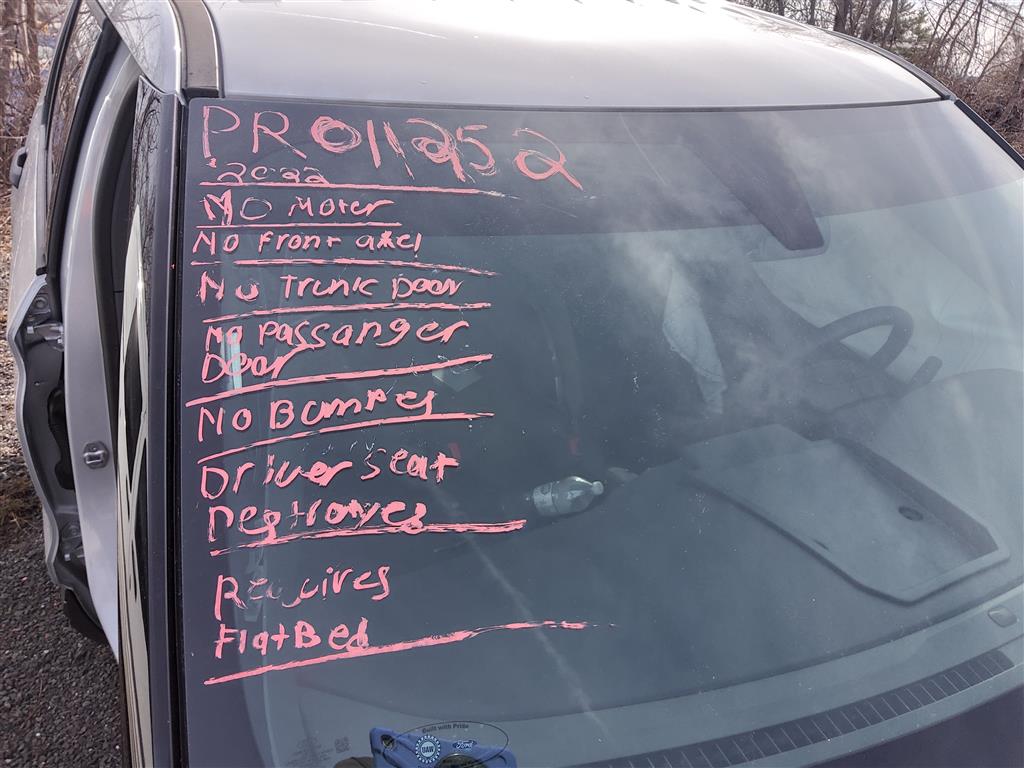 PR011252
2022
NO Moter
No front axel
No Trunk Door
No Passanger
Door
NO Bumper
Driver Seat
Destroyes
Requires
FlatBed
Built with Pride
UAW Ford